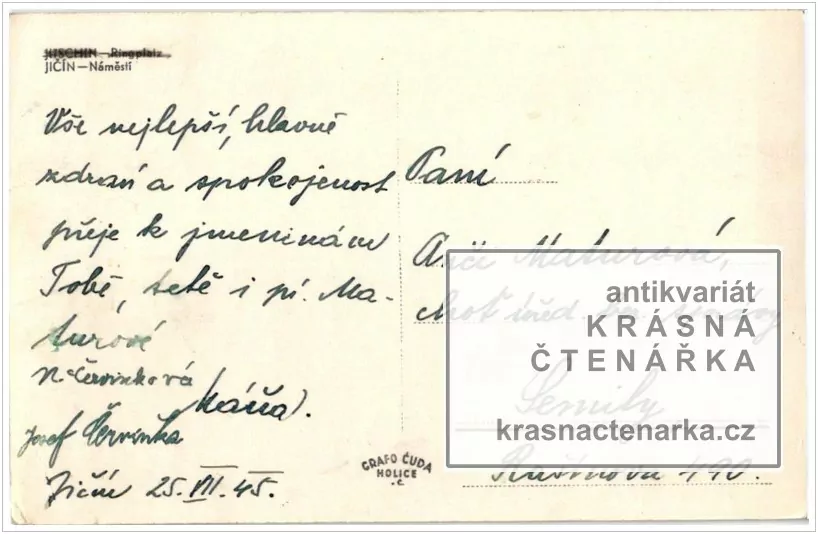 JITSCHIN—Ringplatz
JIČÍN—Náměstí
Vše nejlepší, hlavně
zdraví a spokojenost
přeje k jmeninám
Tobě, tetě i pí. Ma-
turové
N. Červinková
Máňa.
Josef Červinka
Jičín 25. VII. 45.
GRAFO ČUDA
HOLICE
.c
Paní
Maturová,
choť
Semily
Rašínova 490.
antikvariát
KRÁSNÁ
ČTENÁŘKA
krasnactenarka.cz